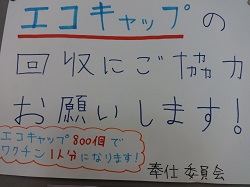 エコキャップの
回収にご協力
お願いします!
エコキャップ800個で
ワクチン1人分になります!
奉仕委員会